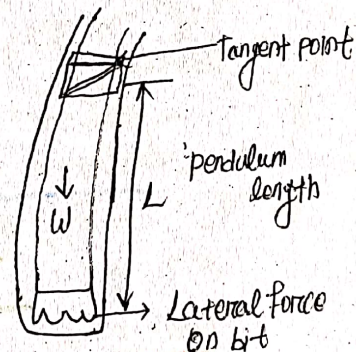 Tangent point
pendulum
length
L
W
Lateral force
on bit